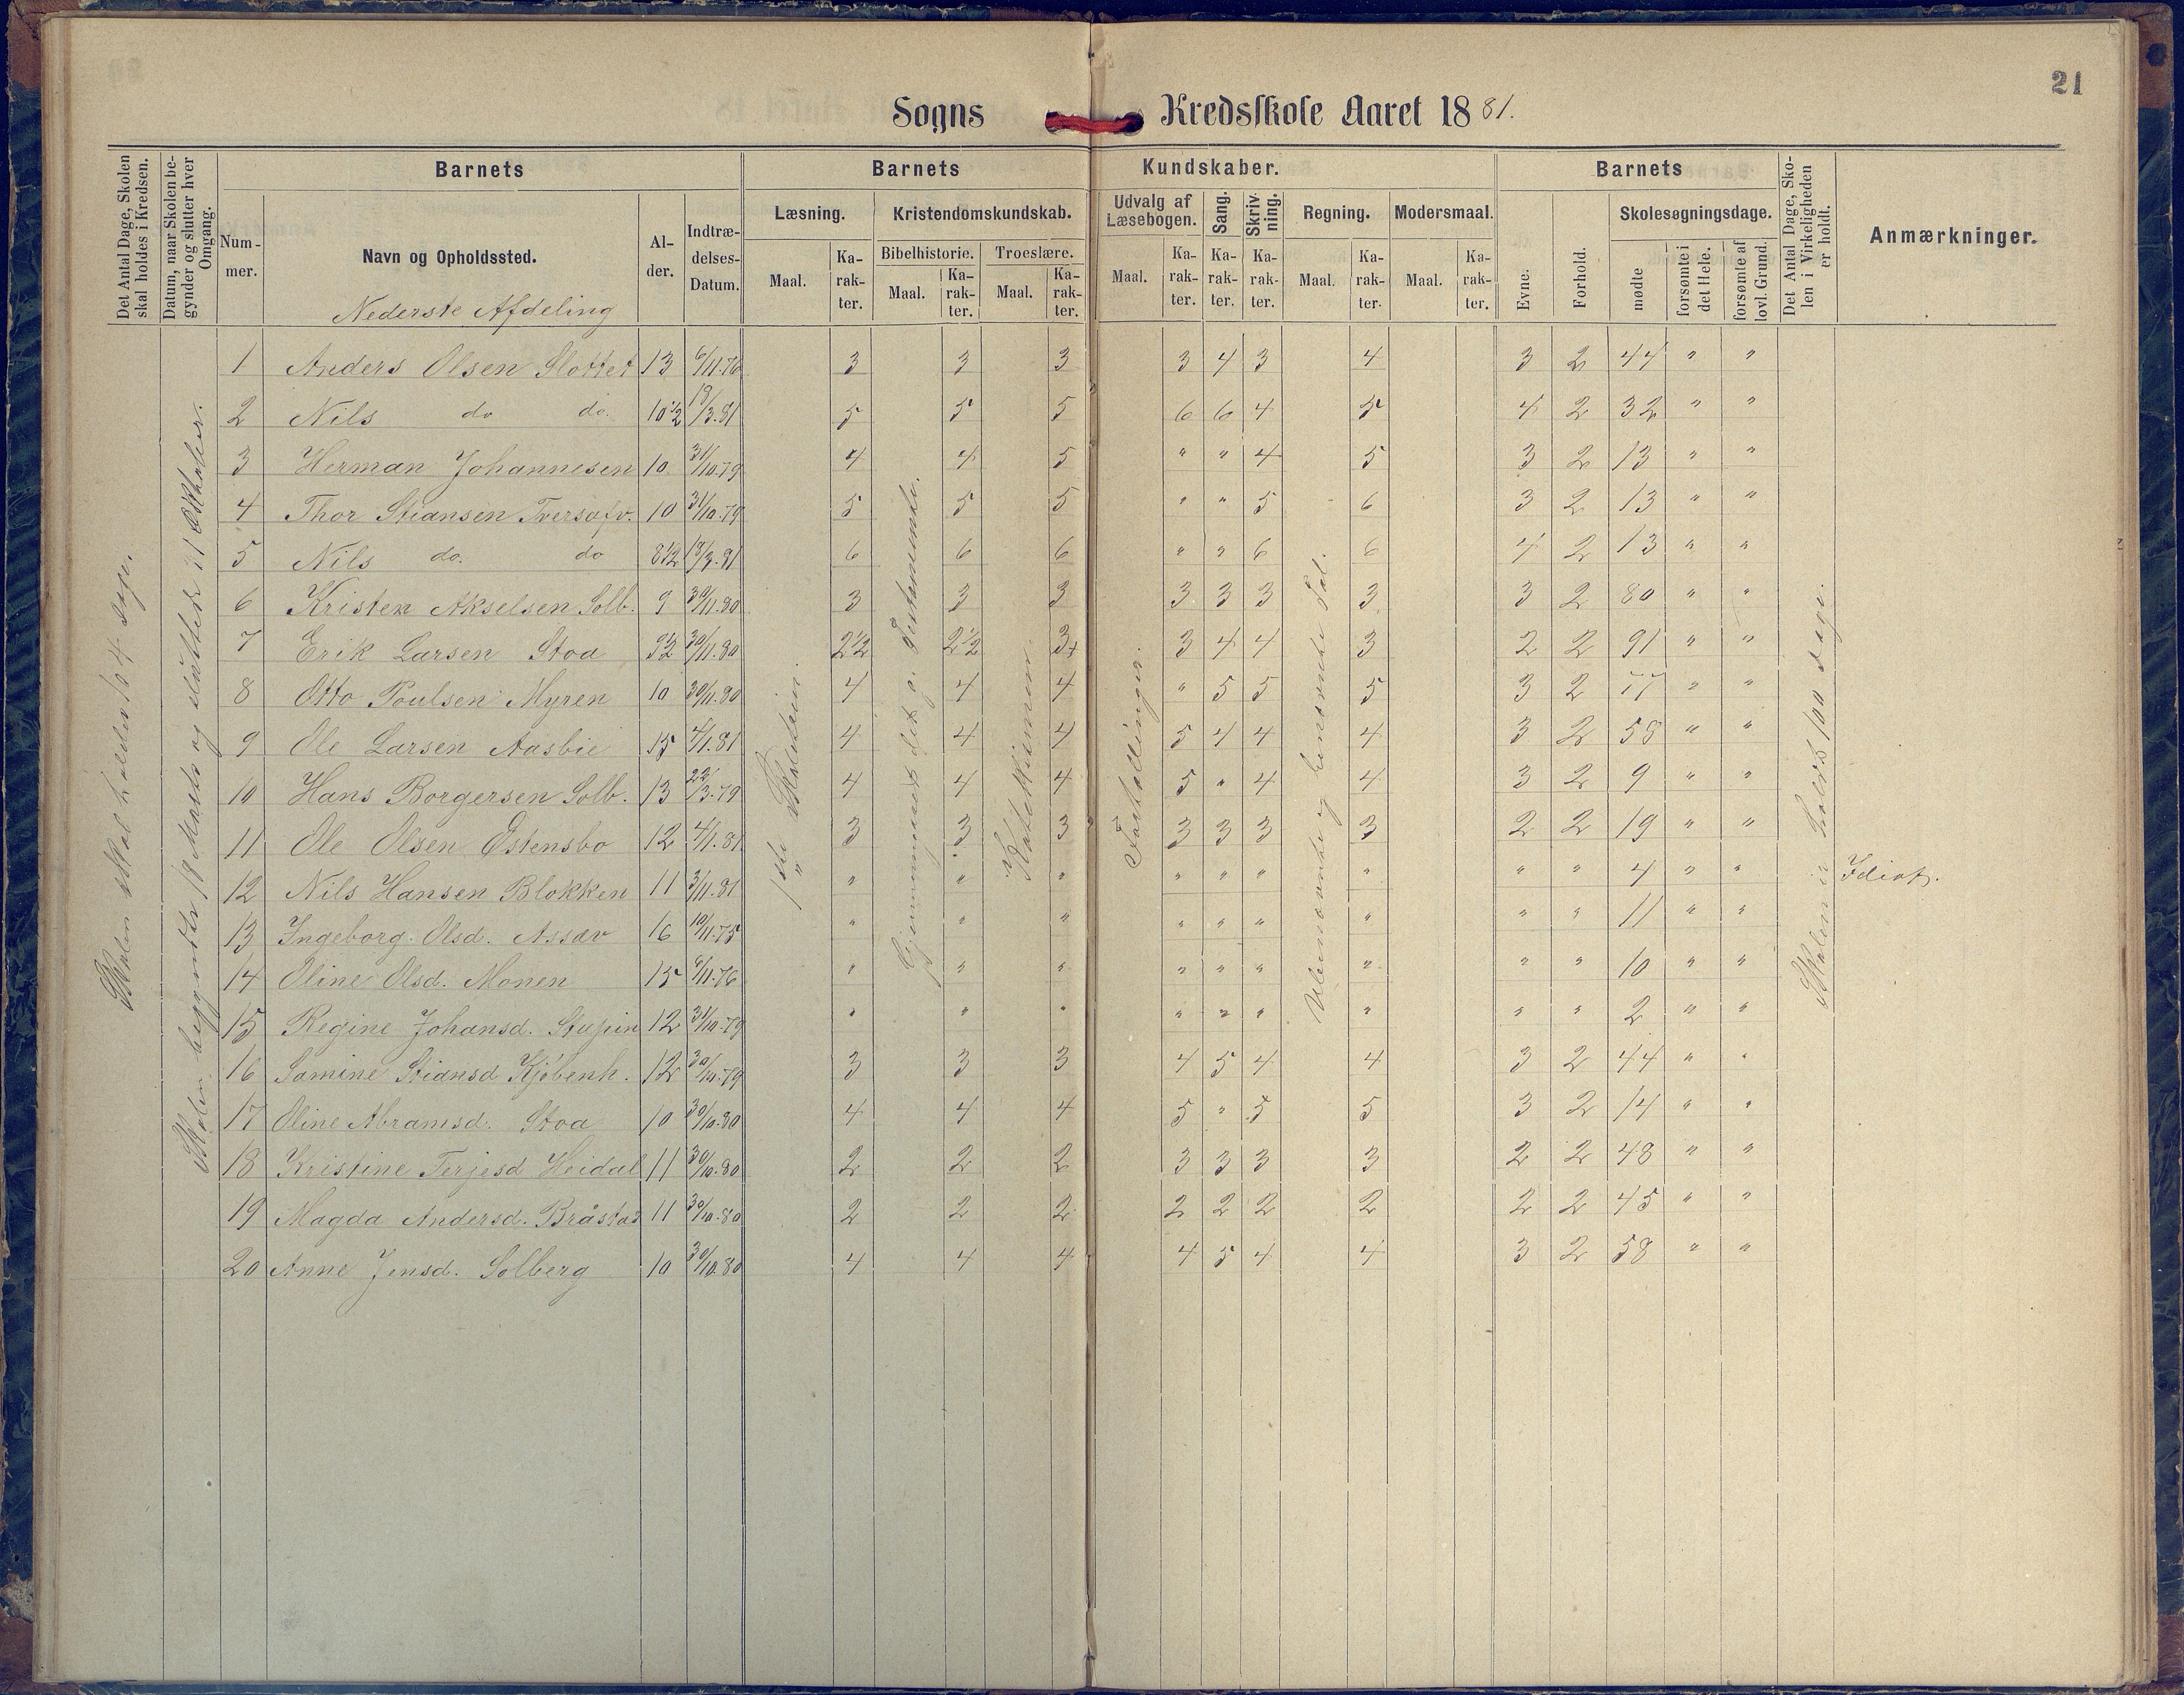 21
Sogns Kredsskole Aaret 1881.
Det Antal Dage, Skolen skal holdes i Kredsen.
Datum, naar Skolen begynder og slutter hver Omgang.
Barnets
Nummer.
Navn og Opholdssted.
Alder.
Indtrædelses-Datum.
Barnets Kundskaber.
Læsning.
Maal.
Karakter.
Kristendomskundskab.
Bibelhistorie.
Maal.
Karakter.
Troeslære.
Maal.
Karakter.
Udvalg af Læsebogen.
Maal.
Karakter.
Sang.
Karakter.
Skrivning.
Karakter.
Regning.
Maal.
Karakter.
Modersmaal.
Maal.
Karakter.
Barnets
Evne.
Forhold.
Skolesøgningsdage.
mødte
forsømte i det Hele.
forsømte af lovl. Grund.
Det Antal Dage, Skolen i Virkeligheden er holdt.
Anmærkninger.
Nederste Afdeling
Skolen skal holdes 104 dage.
Skolen begyndte 18 Marts og sluttede 31 Oktober.
1 Anders Olsen Slottet 13 6/11.76 3 3 3 3 4 3 4 3 2 44 " "
2 Nils do do. 10 1/2 18/3.81 5 5 5 6 6 4 5 4 2 32 " "
3 Herman Johannesen 10. 31/10.79 4 4 5 " " 4 5 3 2 13 " "
4 Thor Stiansen 10 31/10.79 5 5 5 " " 5 6 3 2 13 " "
5 Nils do. do 8 1/2 18/3.81 6 6 6 " " 6 6 4 2 13 " "
6 Kristen Akselsen Solb. 9 30/11.80 3 3 3 3 3 3 3 3 2 80 " "
7 Erik Larsen Stoa 9 1/2 30/11.80 2 1/2 2 1/2 3+ 3 4 4 3 2 2 91 " "
8 Otto Poulsen Myren 10 30/11.80 4 4 4 " 5 5 5 3 2 77 " "
9 Ole Larsen Aasbie 15 4/1.81 4 4 4 5 4 4 4 3 2 58 " "
10 Hans Borgersen Solb. 13 22/3.79 4 4 4 5 " 4 4 3 2 9 " "
11 Ole Olsen Østensbo 12 4/1.81 3 3 3 3 3 3 3 2 2 19 " "
12 Nils Hansen Blokken 11 3/11.81 " " " " " " " " " 4 " " Idiot.
13 Ingeborg Olsd. Assæv 16 10/11.75 " " " " " " " " " 11 " "
14 Oline Olsd. Monen 15 6/11.76 " " " " " " " " " 10 " "
15 Regine Johansd. 12 31/10.79 " " " " " " " " " 2 " "
16 Samine Stiansd Kjøbenh. 12 30/10.79 3 3 3 4 5 4 4 3 2 44 " "
17 Oline Abramsd. Stoa 10 30/10.80 4 4 4 5 " 5 5 3 2 14 " "
18 Kristine Terjesd Heidal 11 30/10.80 2 2 2 3 3 3 3 2 2 48 " "
19 Magda Andersd. Bråstad 11 30/10.80 2 2 2 2 2 2 2 2 2 45 " "
20 Anne Jensd. Solberg 10 30/10.80 4 4 4 4 5 4 4 3 2 58 " "
1ste Skoletrin.
Gjennemgaaet det g. Testamente.
Katekismen.
Fortællinger.
Ubenævnte og benævnte Tal.
Skolen er holdt 100 dage.